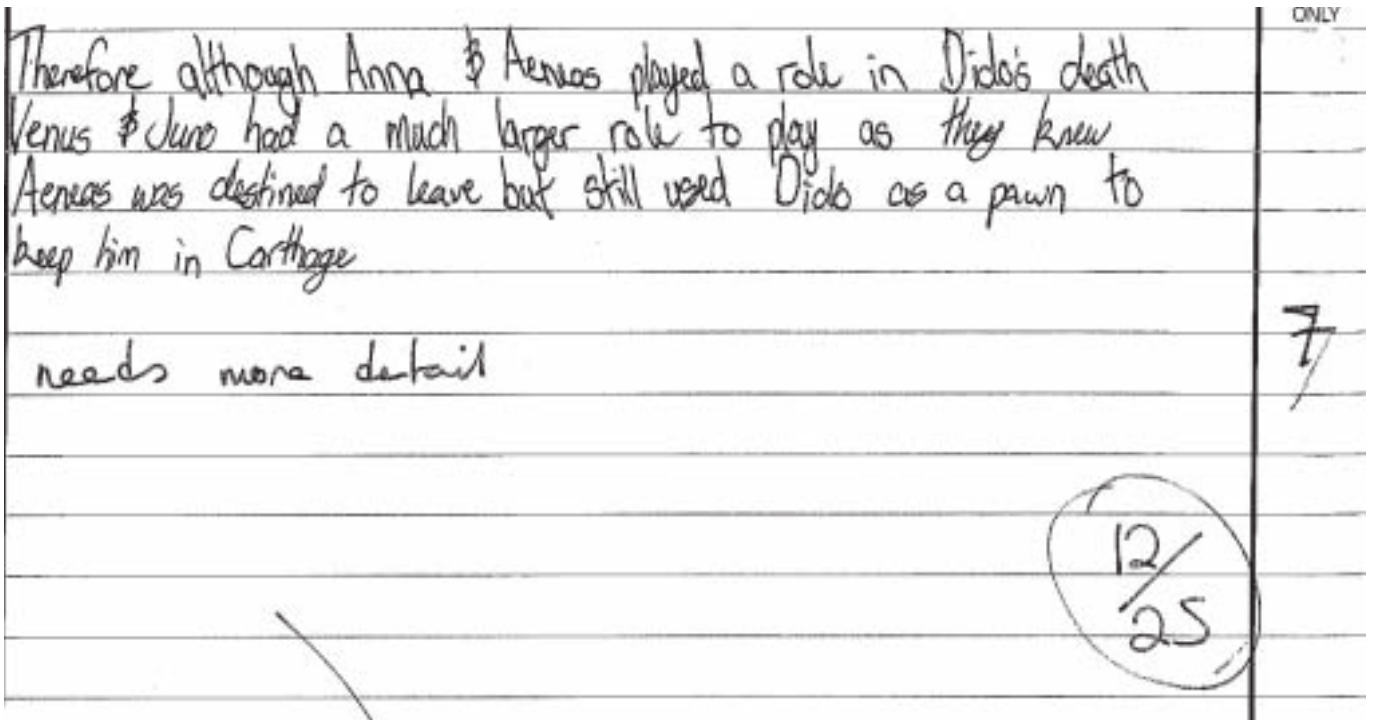 ONLY
Therefore although Anna & Aeneas played a role in Dido's death
Venus & Juno had a much larger role to play as they knew
Aeneas was destined to leave but still used Dido as a pawn to
keep him in Carthage
7
needs more detail
12/25